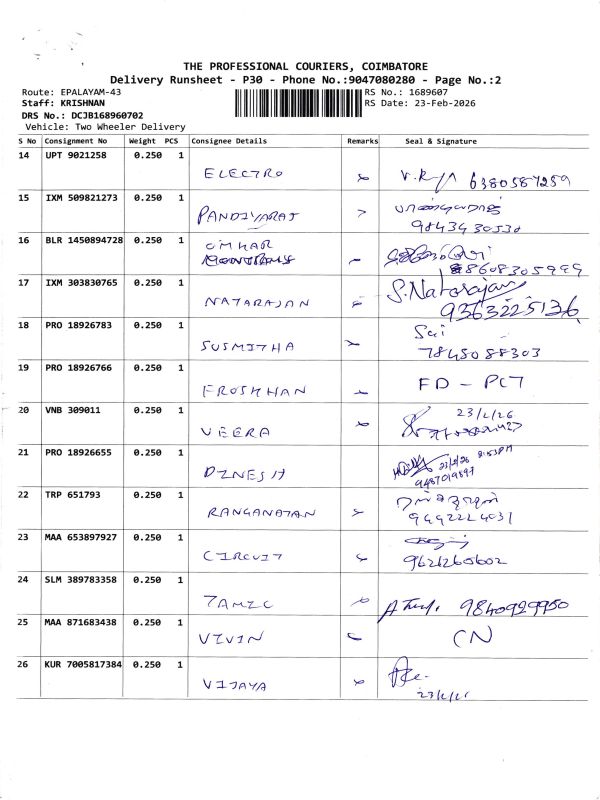 THE PROFESSIONAL COURIERS, COIMBATORE
Delivery Runsheet - P30 - Phone No.:9047080280 - Page No.:2
Route: EPALAYAM-43
RS No.: 1689607
Staff: KRISHNAN
RS Date: 23-Feb-2026
DRS No.: DCJB168960702
Vehicle: Two Wheeler Delivery
S No Consignment No Weight PCS Consignee Details Remarks Seal & Signature
14 UPT 9021258 0.250 1
ELECTRO 6380587259
15 IXM 509821273 0.250 1
PANDIYARAJ
9843430530
16 BLR 1450894728 0.250 1
OMKAR
8608305999
17 IXM 303830765 0.250 1
NATARAJAN S. Natarajan
9363225136
18 PRO 18926783 0.250 1
SUSMITHA Sai
7845088303
19 PRO 18926766 0.250 1
FROSKHAN FD - PCT
20 VNB 309011 0.250 1
VEERA 23/2/26
21 PRO 18926655 0.250 1
DINESH 23/2/26
9487019897
22 TRP 651793 0.250 1
RANGANATAN
9442224031
23 MAA 653897927 0.250 1
CIRCUIT
9621260602
24 SLM 389783358 0.250 1
TAMIL 9840929950
25 MAA 871683438 0.250 1
VIVIN CN
26 KUR 7005817384 0.250 1
VIJAYA
23/2/26